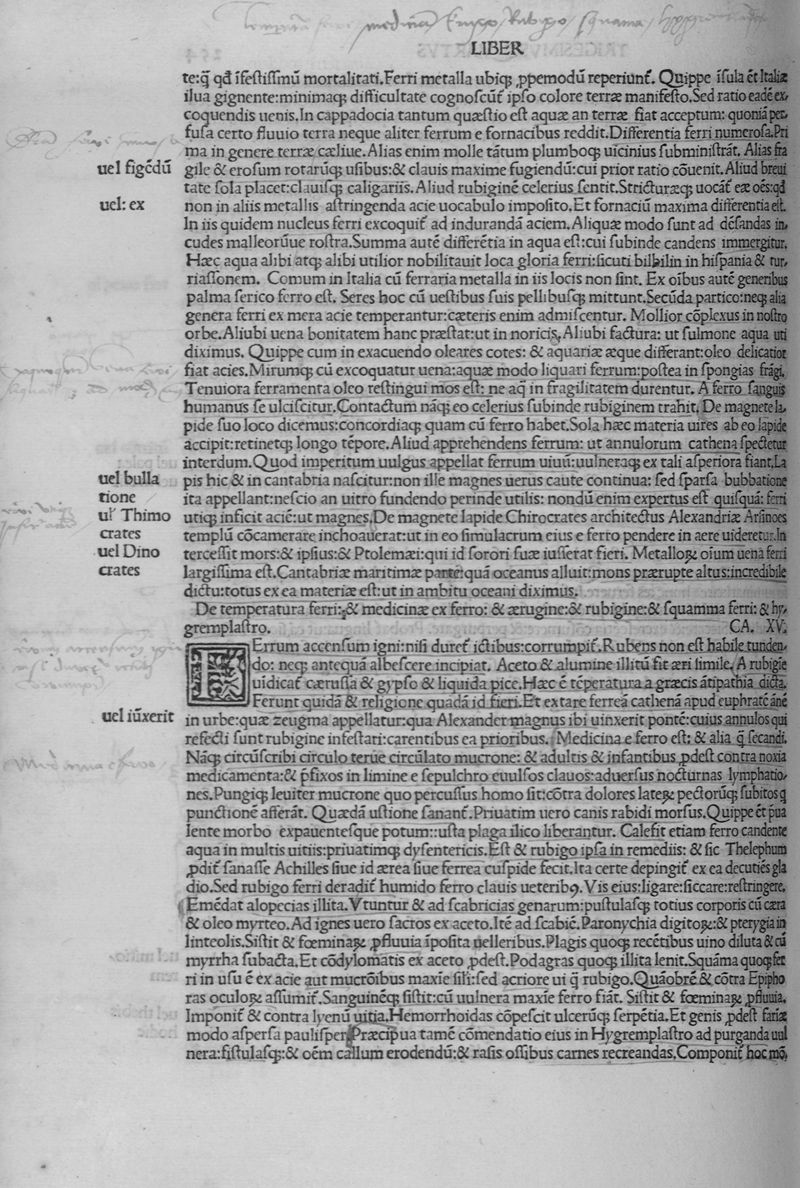 LIBER
te:q̃ qđ ĩfestissimũ mortalitati.Ferri metalla ubiq; ꝓpemodũ reperiunt᷑. Quippe ĩsula ẽt Italiæ
ilua gignente:minimaq; difficultate cognoscũt᷑ ipso colore terræ manifesto.Sed ratio eadẽ ex-
coquendis uenis.In cappadocia tantum quæstio est aquæ an terræ fiat acceptum: quoniã per-
fusa certo fluuio terra neque aliter ferrum e fornacibus reddit.Differentia ferri numerosa.Pri
ma in genere terræ cæliue. Alias enim molle tãtum plumboq; uicinius subministrãt. Alias fra
uel figẽdũ
gile & erosum rotarũq; usibus:& clauis maxime fugiendũ:cui prior ratio cõuenit. Aliud breui
tate sola placet:clauisq; caligariis. Aliud rubiginẽ celerius sentit.Stricturæq; uocãt᷑ eæ oẽs:qđ
uel: ex
non in aliis metallis astringenda acie uocabulo imposito.Et fornaciũ maxima differentia est.
In iis quidem nucleus ferri excoquit᷑ ad indurandã aciem. Aliquæ modo sunt ad dẽsandas in-
cudes malleorũue rostra.Summa autẽ differẽtia in aqua est:cui subinde candens immergitur.
Hæc aqua alibi atq; alibi utilior nobilitauit loca gloria ferri:sicuti bilbilin in hispania & tur-
riassonem. Comum in Italia cũ ferraria metalla in iis locis non sint. Ex oĩbus autẽ generibus
palma serico ferro est. Seres hoc cũ uestibus suis pellibusq; mittunt.Secũda partico:neq; alia
genera ferri ex mera acie temperantur:cæteris enim admiscentur. Mollior cõplexus in nostro
orbe. Aliubi uena bonitatem hanc præstat:ut in noricis. Aliubi factura: ut sulmone aqua uti
diximus. Quippe cum in exacuendo oleares cotes: & aquariæ æque differant:oleo delicatior
fiat acies.Mirumq; cũ excoquatur uena:aquæ modo liquari ferrum:postea in spongias frãgi.
Tenuiora ferramenta oleo restingui mos est: ne aq̃ in fragilitatem durentur. A ferro sanguis
humanus se ulciscitur.Contactum nãq; eo celerius subinde rubiginem trahit. De magnete la-
pide suo loco dicemus:concordiaq; quam cũ ferro habet.Sola hæc materia uires ab eo lapide
accipit:retinetq; longo tẽpore. Aliud apprehendens ferrum: ut annulorum cathena spectetur
interdum.Quod imperitum uulgus appellat ferrum uiuũ:uulneraq; ex tali asperiora fiant.La
uel bulla
pis hic & in cantabria nascitur:non ille magnes uerus caute continua: sed sparsa bubbatione
tione
ita appellant:nescio an uitro fundendo perinde utilis: nondũ enim expertus est quisquã: ferri
ul᷑ Thimo
utiq; inficit aciẽ:ut magnes.De magnete lapide Chirocrates architectus Alexandriæ Arsinoes
crates
templũ cõcamerare inchoauerat:ut in eo simulacrum eius e ferro pendere in aere uideretur.In
uel Dino
tercessit mors:& ipsius:& Ptolemæi:qui id sorori suæ iusserat fieri. Metalloꝝ oĩum uena ferri
crates
largissima est.Cantabriæ maritimæ parte:quã oceanus alluit:mons prærupte altus:incredibile
dictu:totus ex ea materiæ est:ut in ambitu oceani diximus.
De temperatura ferri:& medicinæ ex ferro: & ærugine:& rubigine:& squamma ferri: & hy-
gremplastro. CA. XV.
FErrum accensum igni:nisi duret᷑ ictibus:corrumpit᷑. Rubens non est habile tunden-
do: neq; antequã albescere incipiat. Aceto & alumine illitũ fit æri simile. A rubigie
uidicat᷑ cærussa & gypso & liquida pice.Hæc ẽ tẽperatura a græcis ãtipathia dicta.
Ferunt quidã & religione quadã id fieri.Et extare ferreã cathenã apud euphratẽ ãnẽ
uel iũxerit
in urbe:quæ zeugma appellatur:qua Alexander magnus ibi uinxerit pontẽ:cuius annulos qui
refecti sunt rubigine infestari:carentibus ea prioribus. Medicina e ferro est: & alia q̃ secandi.
Nãq; circũscribi circulo terue circũlato mucrone: & adultis & infantibus ꝓdest contra noxia
medicamenta:& p̃fixos in limine e sepulchro euulsos clauos:aduersus nocturnas lymphatio-
nes.Pungiq; leuiter mucrone quo percussus homo sit:cõtra dolores lateꝝ pectorũq; subitos q
punctionẽ afferãt. Quædã ustione sanant᷑.Priuatim uero canis rabidi morsus.Quippe ẽt p̃ua
lente morbo expauentesque potum::usta plaga ilico liberantur. Calefit etiam ferro candente
aqua in multis uitiis:priuatimq; dysentericis.Est & rubigo ipsa in remediis: & sic Thelephum
ꝓdit᷑ sanasse Achilles siue id ærea siue ferrea cuspide fecit.Ita certe depingit᷑ ex ea decutiẽs gla
dio.Sed rubigo ferri deradit᷑ humido ferro clauis ueterib9. Vis eius:ligare:siccare:restringere.
Emẽdat alopecias illita. Vtuntur & ad scabricias genarum:pustulasq; totius corporis cũ cæra
& oleo myrteo. Ad ignes uero sacros ex aceto.Itẽ ad scabiẽ. Paronychia digitoꝝ:& pterygia in
linteolis.Sistit & fœminaꝝ ꝓfluuia ĩposita uelleribus.Plagis quoq; recẽtibus uino diluta & cũ
myrrha subacta.Et cõdylomatis ex aceto ꝓdest.Podagras quoq; illita lenit.Squãma quoq; fer
ri in usu ẽ ex acie aut mucrõibus maxĩe sili:sed acriore ui q̃ rubigo.Quãobrẽ & cõtra Epipho
ras oculoꝝ assumit᷑.Sanguinẽq; sistit:cũ uulnera maxĩe ferro fiãt. Sistit & fœminaꝝ ꝓfluuia.
Imponit᷑ & contra lyenũ uitia.Hemorrhoidas cõpescit ulcerũq; serpẽtia.Et genis ꝓdest fariæ
modo aspersa paulisper.Præcipua tamẽ cõmendatio eius in Hygremplastro ad purganda uul
nera:fistulasq;:& oẽm callum erodendũ:& rasis ossibus carnes recreandas.Componit᷑ hoc mõ.